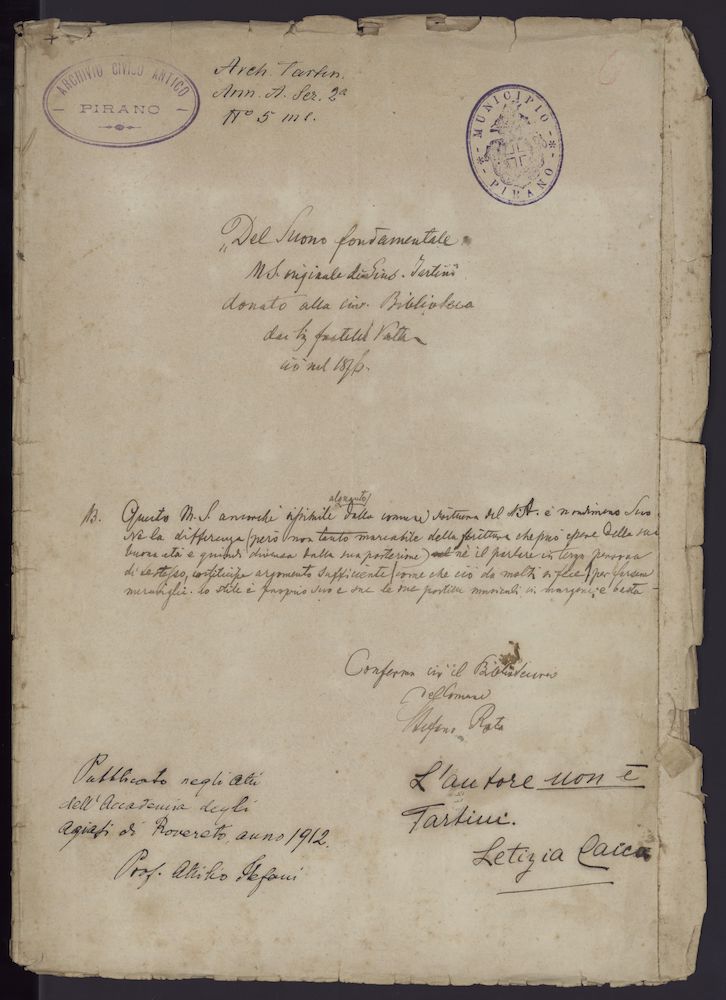 ARCHIVIO CIVICO ANTICO
PIRANO
Arch. Tartin.
Ann. A. Ser. 2a
No 5 mc.
MUNICIPIO
PIRANO
6
„Del Suono fondamentale
M.S. originale di Gius. Tartini"
donato alla civ. Biblioteca
dai fratelli
ciò nel
alquanto
Questo M.S. ancorchè dissimile dalla comune scrittura del è nondimeno Suo.
Nè la differenza (però non tanto marcabile della scrittura che può essere della sua
buona età e quindi diversa dalla sua posteriore) nè il parlare in terza persona
di se stesso, costituisce argomento sufficiente (come che ciò da molti si fece) per farsene
meraviglia. lo stile è proprio suo e sue le sue partite musicali in margine, e basta
Conferma ciò il Bibliotecario
del Comune
Stefano Rota
Pubblicato negli Atti
dell'Accademia degli
agiati di Rovereto, anno 1912.
Prof. Attilio Stefani
L'autore non è
Tartini.
Letizia